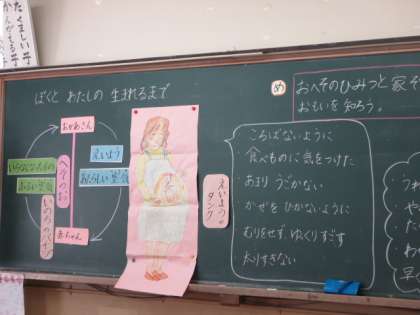 たくましい子
かんがえる子
ぼくと わたしの 生まれるまで
おかあさん
いらなくなったもの
ふるい空気
へそのお
いのちのパイプ
えいよう
あたらしい空気
赤ちゃん
えいようの
タンク
め
おへそのひみつと家そ
おもいを知ろう。
ころばないように
・食べものに気をつけた
・あまり うごかない
・かぜを ひかないように
・むりをせず、ゆっくりすごす
・太りすぎない